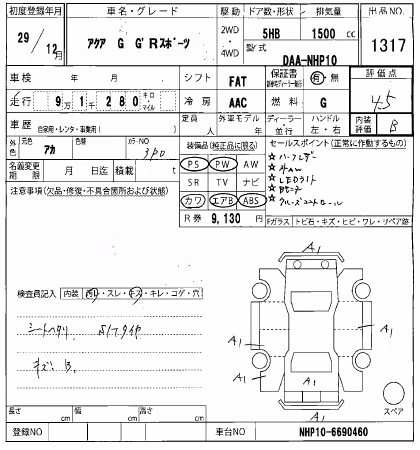 初度登録年月 車名・グレード 駆動 ドア数・形状 排気量 出品NO.
29/12月 アクア G G'Rスポーツ 2WD・4WD 5HB 1500 cc 1317
型式 DAA-NHP10
車検 年 月 シフト FAT 保証書 有・無 評価点
走行 9万1千280 キロ・マイル 冷房 AAC 燃料 G 4.5
車歴 自家用・レンタ・事業用( ) 定員 人 外車モデル 年 ディーラー・並行 ハンドル 左・右 内装評価 B
外色 元色 アカ 色替 カラーNO 3P0 装備品(純正品に限る) セールスポイント(正常に作動するもの)
名義変更期限 月 日迄 積載 t PS PW AW
☆ハーフレザー
☆AW
SR TV ナビ
☆LEDライト
カワ エアB ABS
☆クルーズコントロール
注意事項(欠品・修復・不具合箇所および状態)
R券 9,130 円
Fガラス トビ石・キズ・ヒビ・ワレ・リペア跡
検査員記入 内装 汚レ・スレ・キズ・キレ・コゲ・穴
シートヘタリ
キズ
A1
A1
A1
A1
A1
A1
スペア
長さ cm 幅 cm 高さ cm
登録NO 車台NO NHP10-6690460